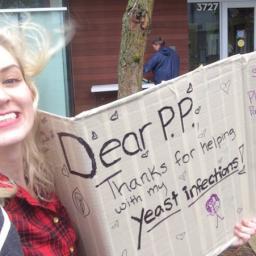 3727
Dear P.P.,
Thanks for helping
with my
yeast infections!